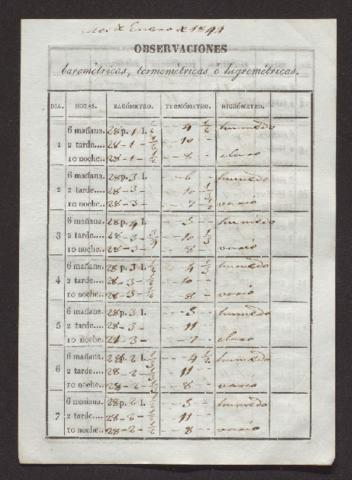 Mes de Enero de 1841
OBSERVACIONES
barométricas, termométricas é higrométricas.
DIA. HORAS. BARÓMETRO. TERMÓMETRO. HIGRÓMETRO.
6 mañana. 28 p. 1 l. 1/2 - 9 1/2 - humedo
1 2 tarde.... 28 - 1 - 10 -
10 noche.. 28 - 1 - 8 - claro
6 mañana. 28 p. 3 l. - 6 - humedo
2 2 tarde.... 28 - 3 - 10 1/2 -
10 noche.. 28 - 3 - 7 1/2 - vario
6 mañana. 28 p. 4 l. - 5 - humedo
3 2 tarde.... 28 - 3 - 3/4 - 10 1/3 -
10 noche.. 28 - 3 - 8 - vario
6 mañana. 28 p. 3 l. 1/2 - 4 1/2 - humedo
4 2 tarde.... 28 - 3 - 1/2 - 10 -
10 noche.. 28 - 3 - 1/2 - 8 - vario
6 mañana. 28 p. 3 l. - 5 - humedo
5 2 tarde.... 28 - 3 - 11 -
10 noche. 28 - 3 - 7 - claro
6 mañana. 28 p. 2 l. - 4 1/2 - humedo
6 2 tarde.... 28 - 2 - 11 -
10 noche.. 28 - 2 - 8 - vario
6 mañana. 28 p. 2 l. - 5 - humedo
7 2 tarde.... 28 - 2 - 11 -
10 noche.. 28 - 2 - 1/2 - 8 - vario